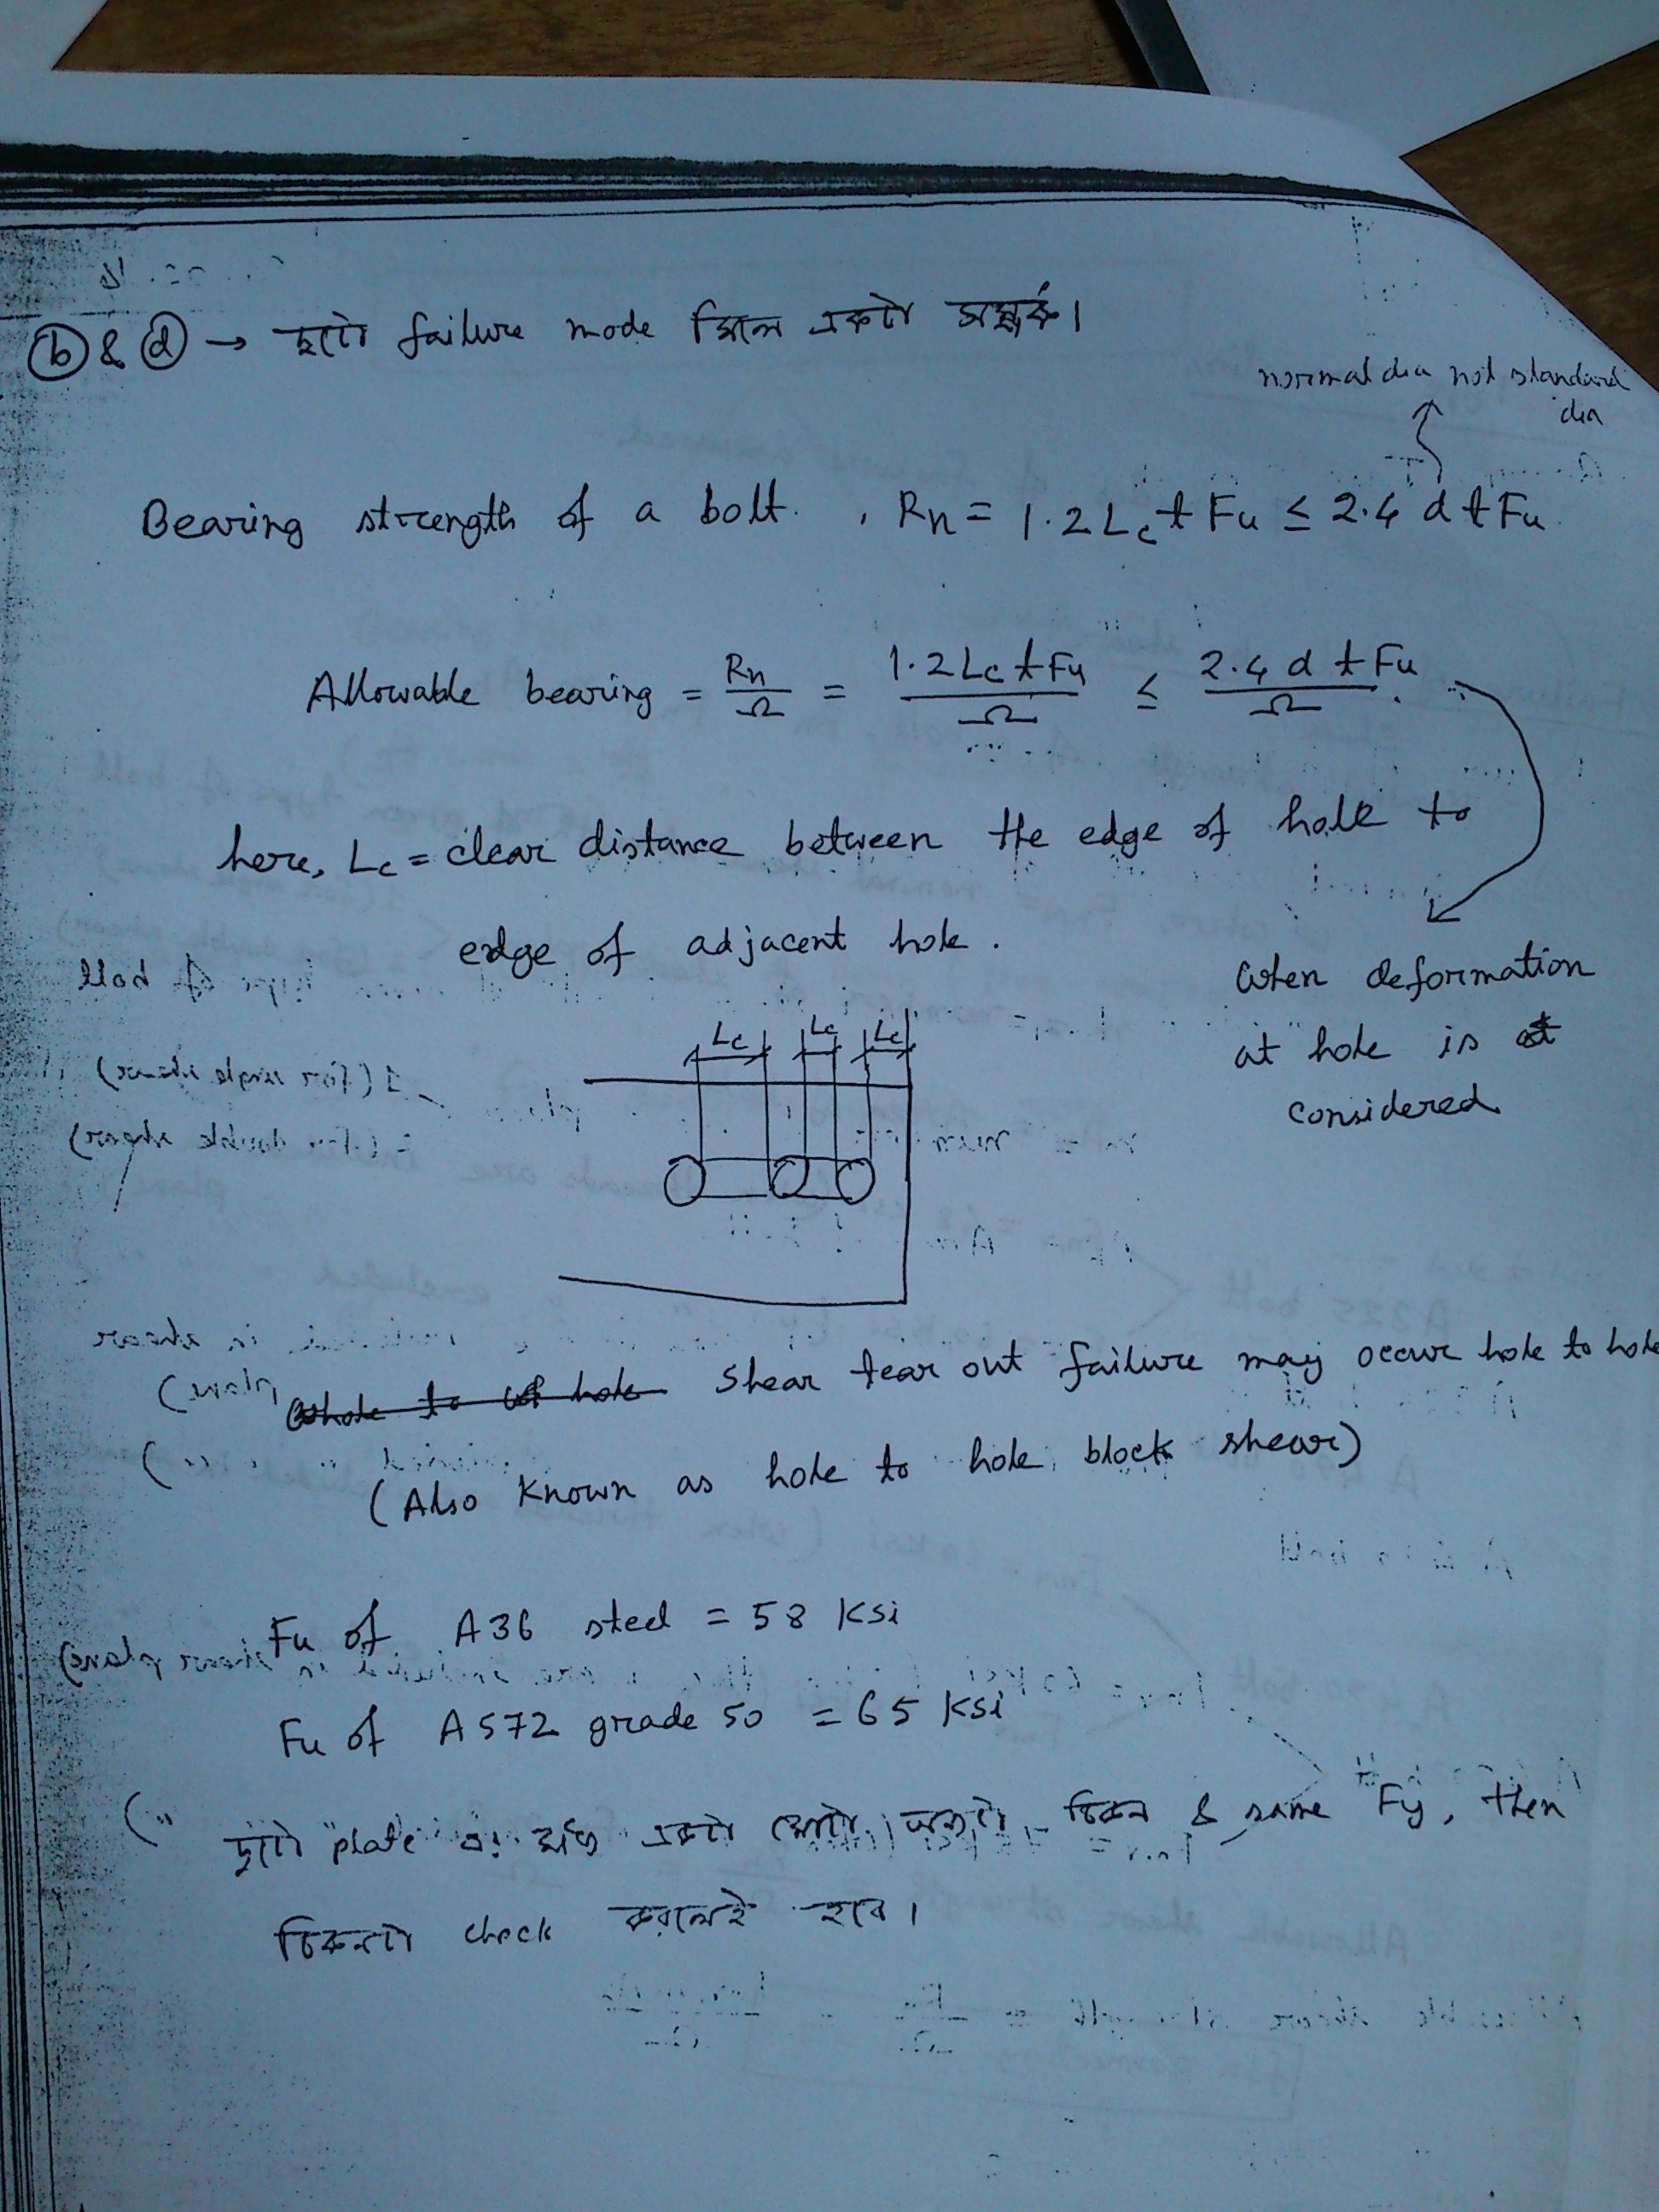 ⓑ & ⓓ → দুটো failure mode মিলে একটা সম্পর্ক।
normal dia not standard
dia
Bearing strength of a bolt. , Rn = 1.2 Lc t Fu ≤ 2.4 d t Fu
Allowable bearing = Rn/Ω = 1.2 Lc t Fu/Ω ≤ 2.4 d t Fu/Ω.
here, Lc = clear distance between the edge of hole to
edge of adjacent hole.
when deformation
at hole is
considered
Lc Lc Lc
shear tear out failure may occur hole to hole
(Also known as hole to hole block shear)
Fu of A36 steel = 58 ksi
Fu of A572 grade 50 = 65 ksi
দুটো plate এর যদি একটা মোটা অন্যটা চিকন & same Fy, then
চিকনটা check করলেই হবে।